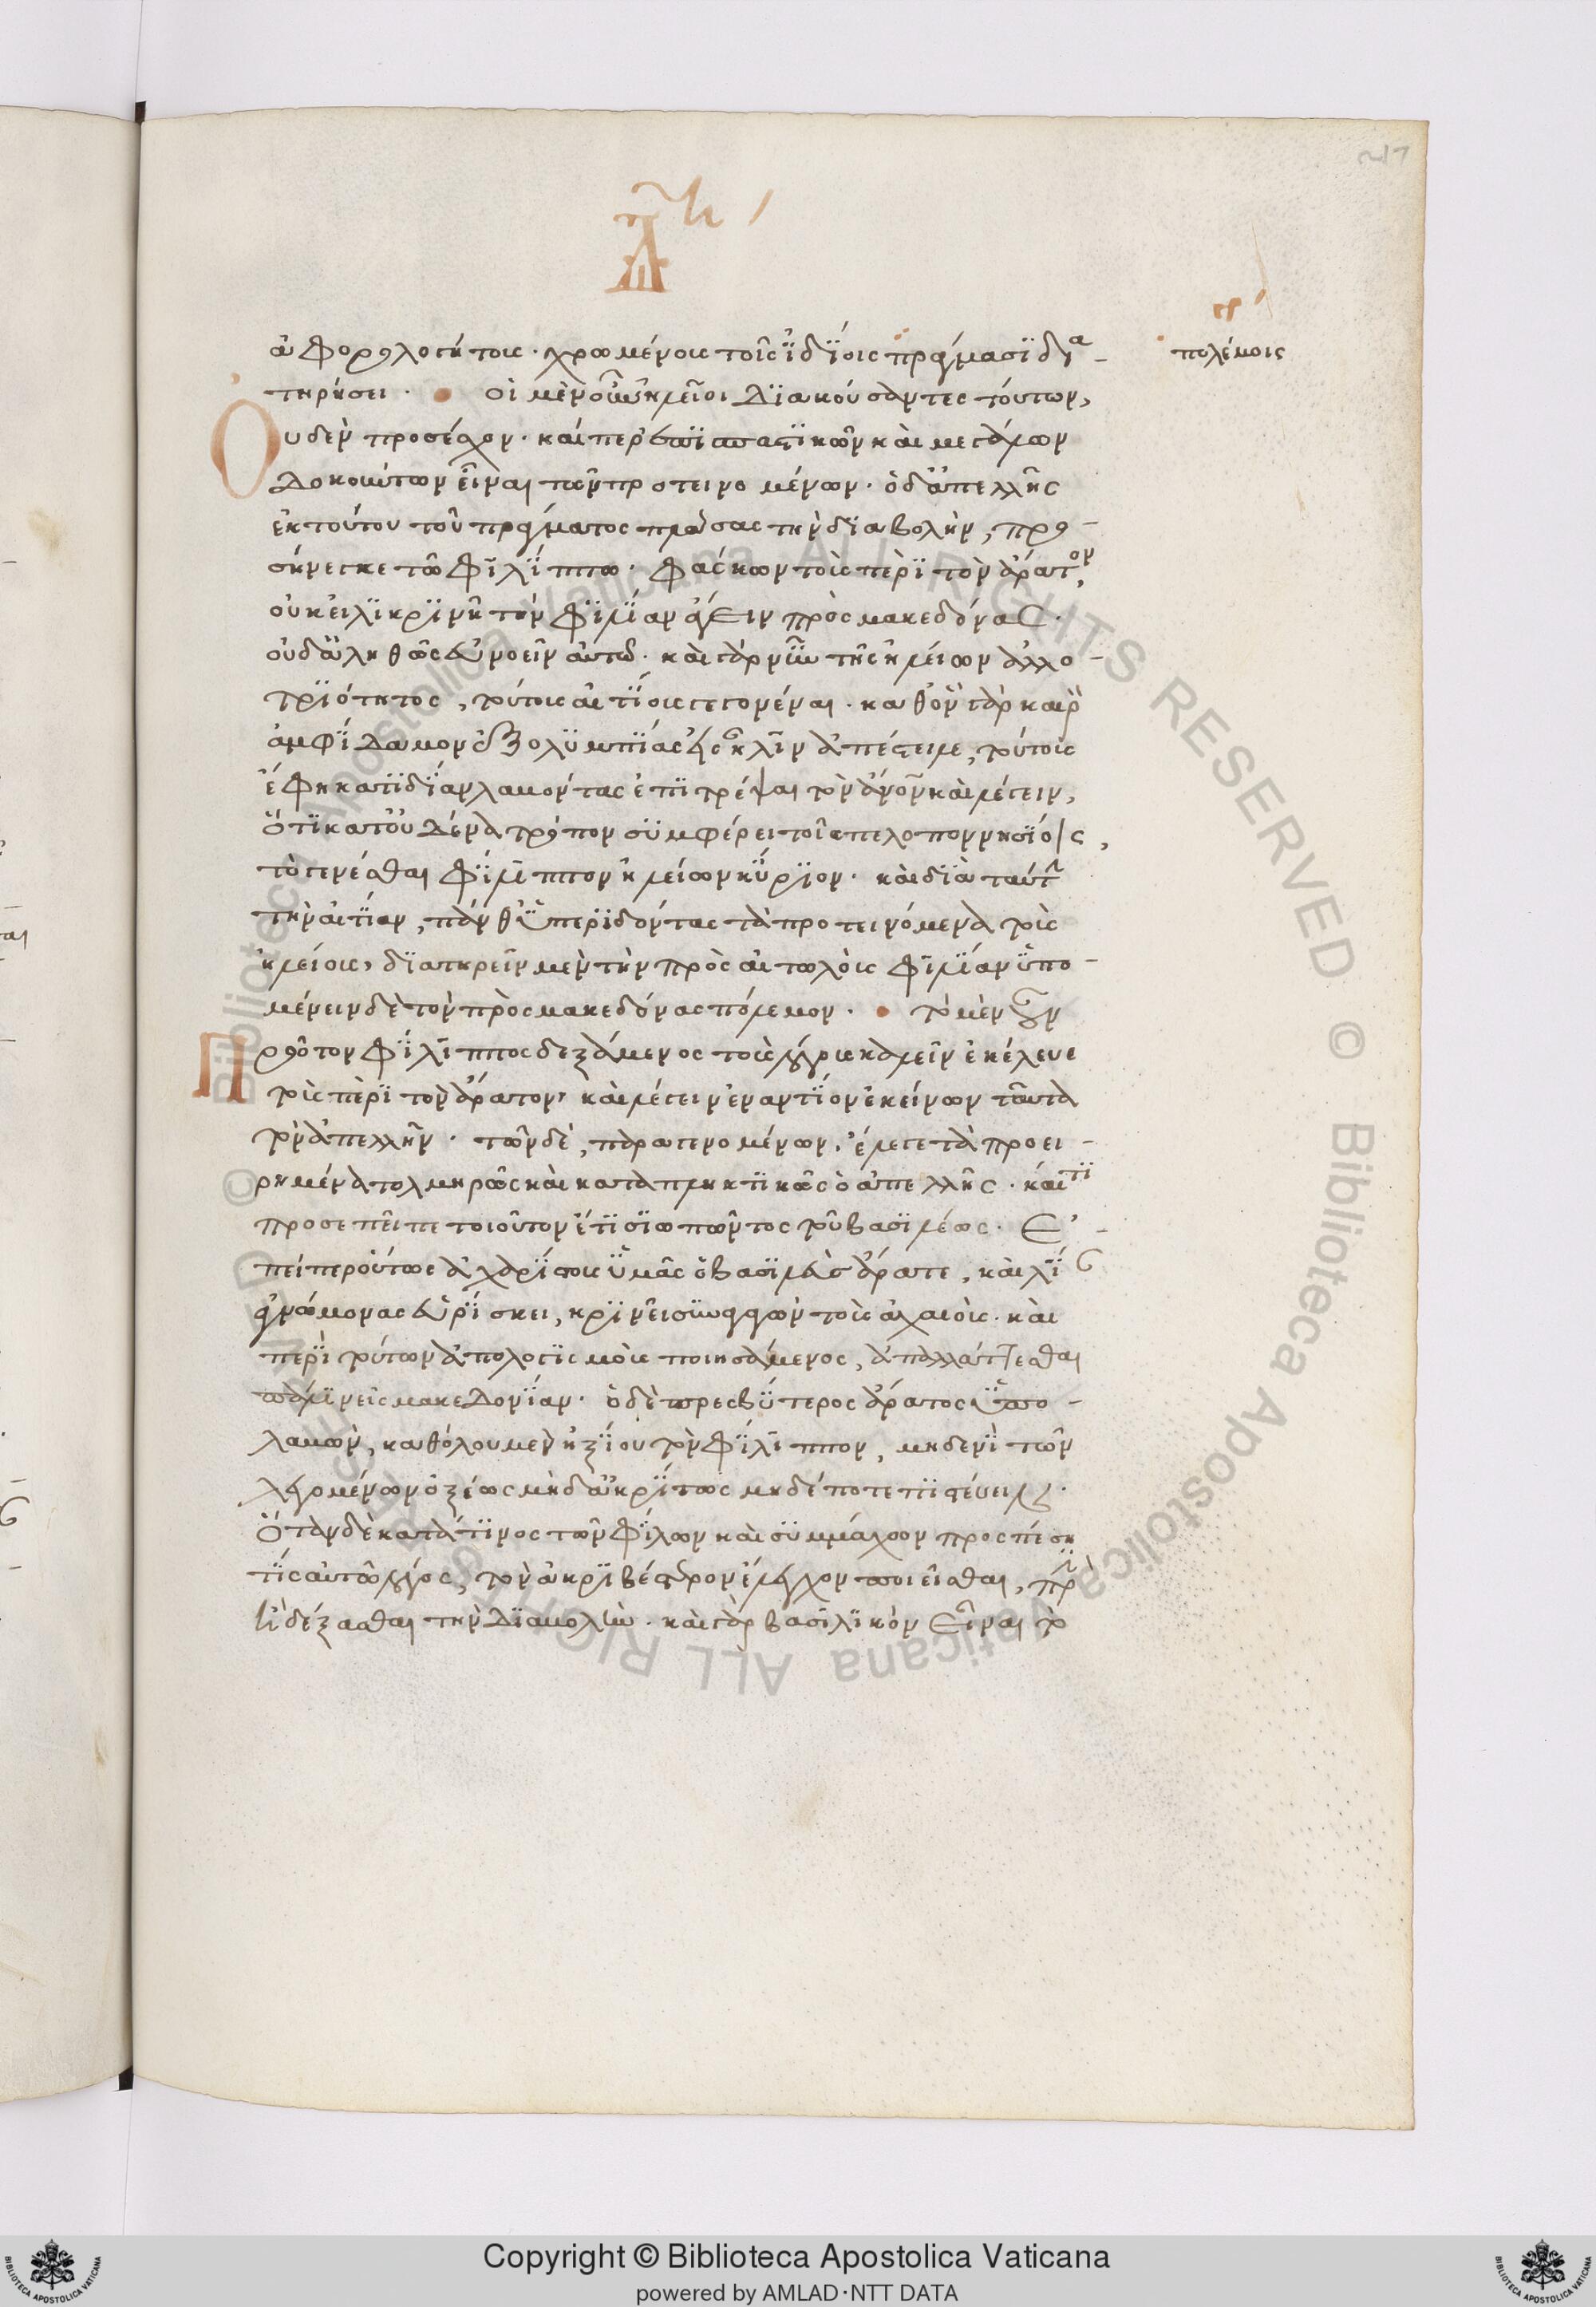 217
ΛΗ
ἀφορολογήτους· χρωμένους τοῖς ἰδίοις πράγμασι δια-
πολέμοις
τηρήσει· οἱ μὲν οὖν ἠλεῖοι διακούσαντες τούτων,
Ουδὲν προσέσχον· καίπερ ἐπισπαστικῶν καὶ μεγάλων
δοκούντων εἶναι τῶν προτεινομένων· ὁ δ' ἀπελλῆς
ἐκ τούτου τοῦ πράγματος πλάσας τὴν διαβολὴν, προ-
σήνεγκε τῶ φιλίππω· φάσκων τοὺς περὶ τὸν ἄρατον,
οὐκ εἰλικρινῆ τὴν φιλίαν ἄγειν πρὸς μακεδόνας·
οὐδ' ἀληθῶς εὐνοεῖν αὐτῶ· καὶ γὰρ νῦν τῆς ἠλείων ἀλλο-
τριότητος, τούτους αἰτίους γεγονέναι· καθ' ὃν γὰρ καιρὸν
ἀμφίδαμον ἐξ ὀλυμπίας εἰς ἦλιν ἀπέστειλε, τούτους
ἔφη κατ' ἰδίαν λαβόντας ἐπιτρέψαι τὸν ἄνον καὶ λέγειν,
ὅτι κατ' οὐδένα τρόπον συμφέρει τοῖς πελοποννησίοις,
τὸ γενέσθαι φίλιππον ἠλείων κύριον· καὶ διὰ ταύτην
τὴν αἰτίαν, πάνθ' ὑπεριδόντας τὰ προτεινόμενα τοὺς
ἠλείους, διατηρεῖν μὲν τὴν πρὸς αἰτωλοὺς φιλίαν ὑπο-
μένειν δὲ τὸν πρὸς μακεδόνας πόλεμον· τὸ μὲν οὖν
Πρῶτον φίλιππος δεξάμενος τοὺς λόγους καλεῖν ἐκέλευε
τοὺς περὶ τὸν ἄρατον, καὶ λέγειν ἐναντίον ἐκείνων ταῦτα
τὸν ἀπελλῆν· τῶν δὲ, παραγενομένων, ἔλεγε τὰ προει-
ρημένα τολμηρῶς καὶ καταπληκτικῶς ὁ ἀπελλῆς· καί τι
προσεπεῖπε τοιοῦτον ἔτι σιωπῶντος τοῦ βασιλέως· Ἐ-
πείπερ οὕτως ἀχαρίστους ὑμᾶς ὁ βασιλεὺς ἄρατε, καὶ λίαν
ἀγνώμονας εὑρίσκει, κρίνει συναγαγὼν τοὺς ἀχαιοὺς· καὶ
περὶ τούτων ἀπολογισμοὺς ποιησάμενος, ἀπαλλάττεσθαι
πάλιν εἰς μακεδονίαν· ὁ δὲ πρεσβύτερος ἄρατος ὑπο-
λαβὼν, καθόλου μὲν ἠξίου τὸν φίλιππον, μηδενὶ τῶν
λεγομένων ὀξέως μηδ' ἀκρίτως μηδέποτε πιστεύειν·
ὅταν δὲ κατά τινος τῶν φίλων καὶ συμμάχων προσπέση
τίς αὐτῶ λόγος, τὸν ἀκριβέστερον ἔλεγχον ποιεῖσθαι, πρὶν
ἢ δέξασθαι τὴν διαβολὴν· καὶ γὰρ βασιλικὸν εἶναι τὸ
© Biblioteca Apostolica Vaticana ALL RIGHTS RESERVED
Copyright © Biblioteca Apostolica Vaticana
powered by AMLAD·NTT DATA